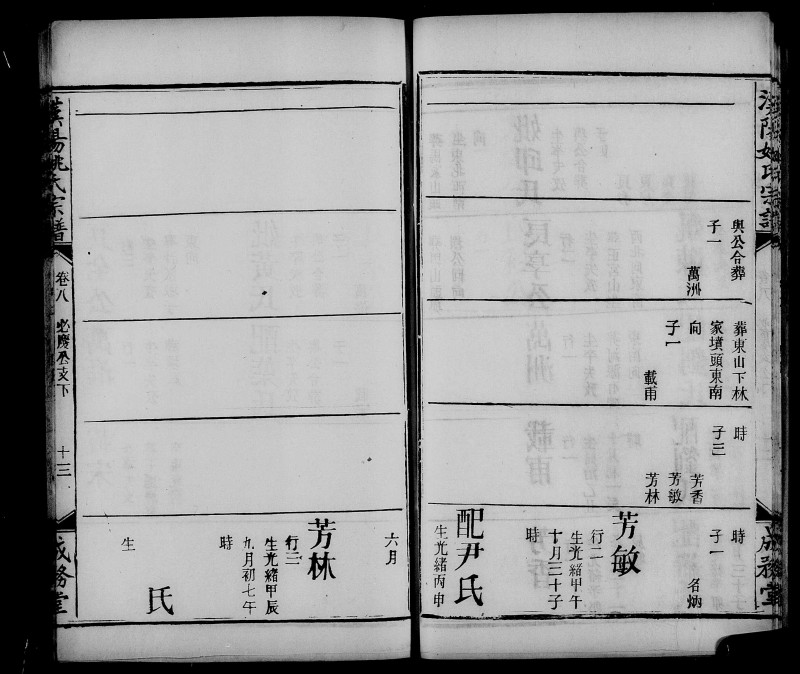 漢陽姚氏宗譜
與公合葬
子一
萬洲
葬東山下林
家墳頭東南
向
子一
載甫
時
子三
芳香
芳敏
芳林
時
子一
名炳
芳敏
行二
生光緒甲午
十月三十子
時
配尹氏
生光緒丙申
成務堂
六月
芳林
行三
生光緒甲辰
九月初七午
時
氏
生
漢陽姚氏宗譜
卷八
必慶公支下
十三
成務堂